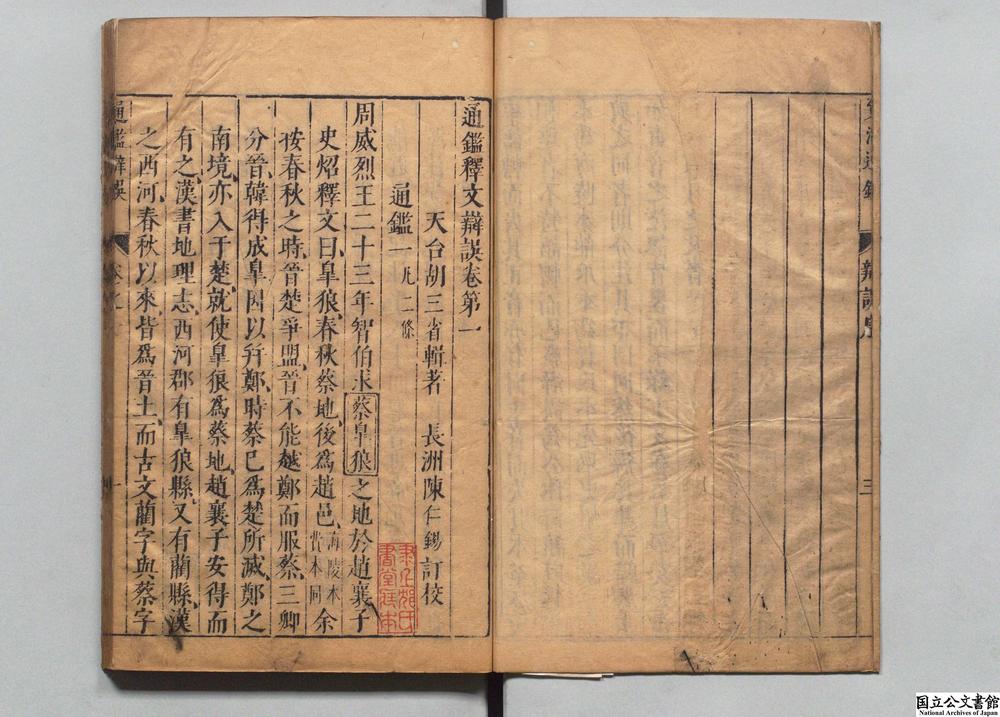 資治通鑑
辯誤序
三
通鑑釋文辯誤卷第一
天台胡三省輯著　長洲陳仁錫訂校
通鑑一凡二條
周威烈王二十三年智伯求蔡皐狼之地於趙襄子
史炤釋文曰皐狼春秋蔡地後爲趙邑海陵本費本同余
按春秋之時晉楚爭盟晉不能越鄭而服蔡三卿
分晉韓得成皐因以并鄭時蔡已爲楚所滅鄭之
南境亦入于楚就使皐狼爲蔡地趙襄子安得而
有之漢書地理志西河郡有皐狼縣又有藺縣漢
之西河春秋以來皆爲晉土而古文藺字與蔡字
通鑑辯誤
卷之一
一
国立公文書館
National Archives of Japan